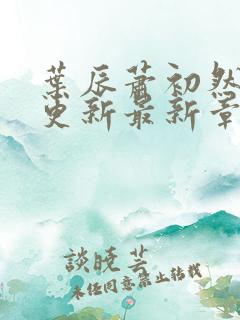 葉辰蕭初然
更新最新章
談曉芸
未任同意禁止转载